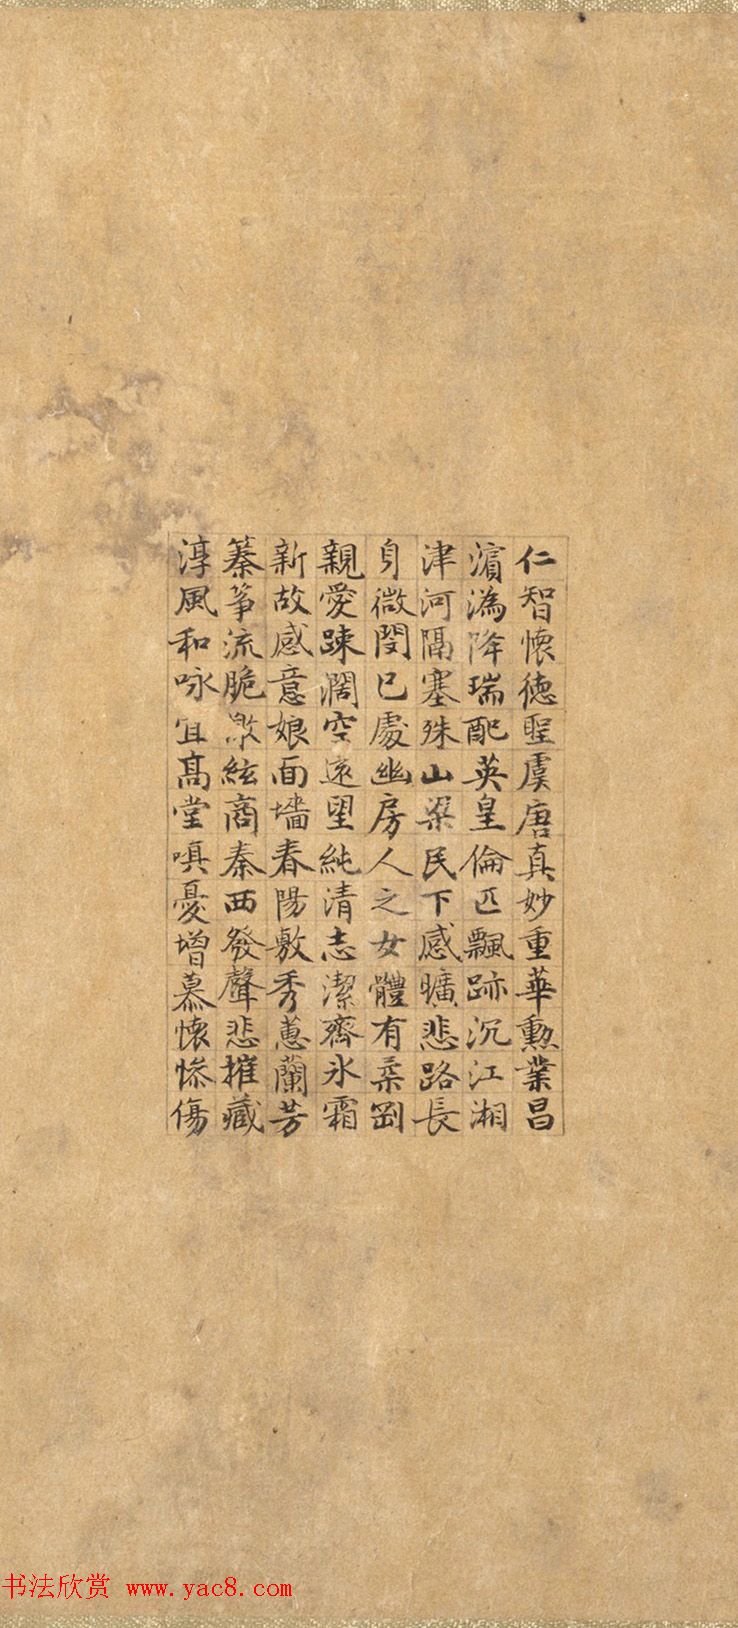 仁智懷德聖虞唐真妙重華勳業昌
濵溈降瑞配英皇倫匹飄跡沉江湘
津河隔塞殊山梁民下感曠悲路長
身微閔已處幽房人之女體有柔剛
親愛踈濶空遠望純清志潔齊氷霜
新故感意娘面墻春陽敷秀蕙蘭芳
蓁筝流脆激絃商秦西發聲悲摧藏
淳風和咏宜髙堂嗔憂增慕懷惨傷
书法欣赏 www.yac8.com